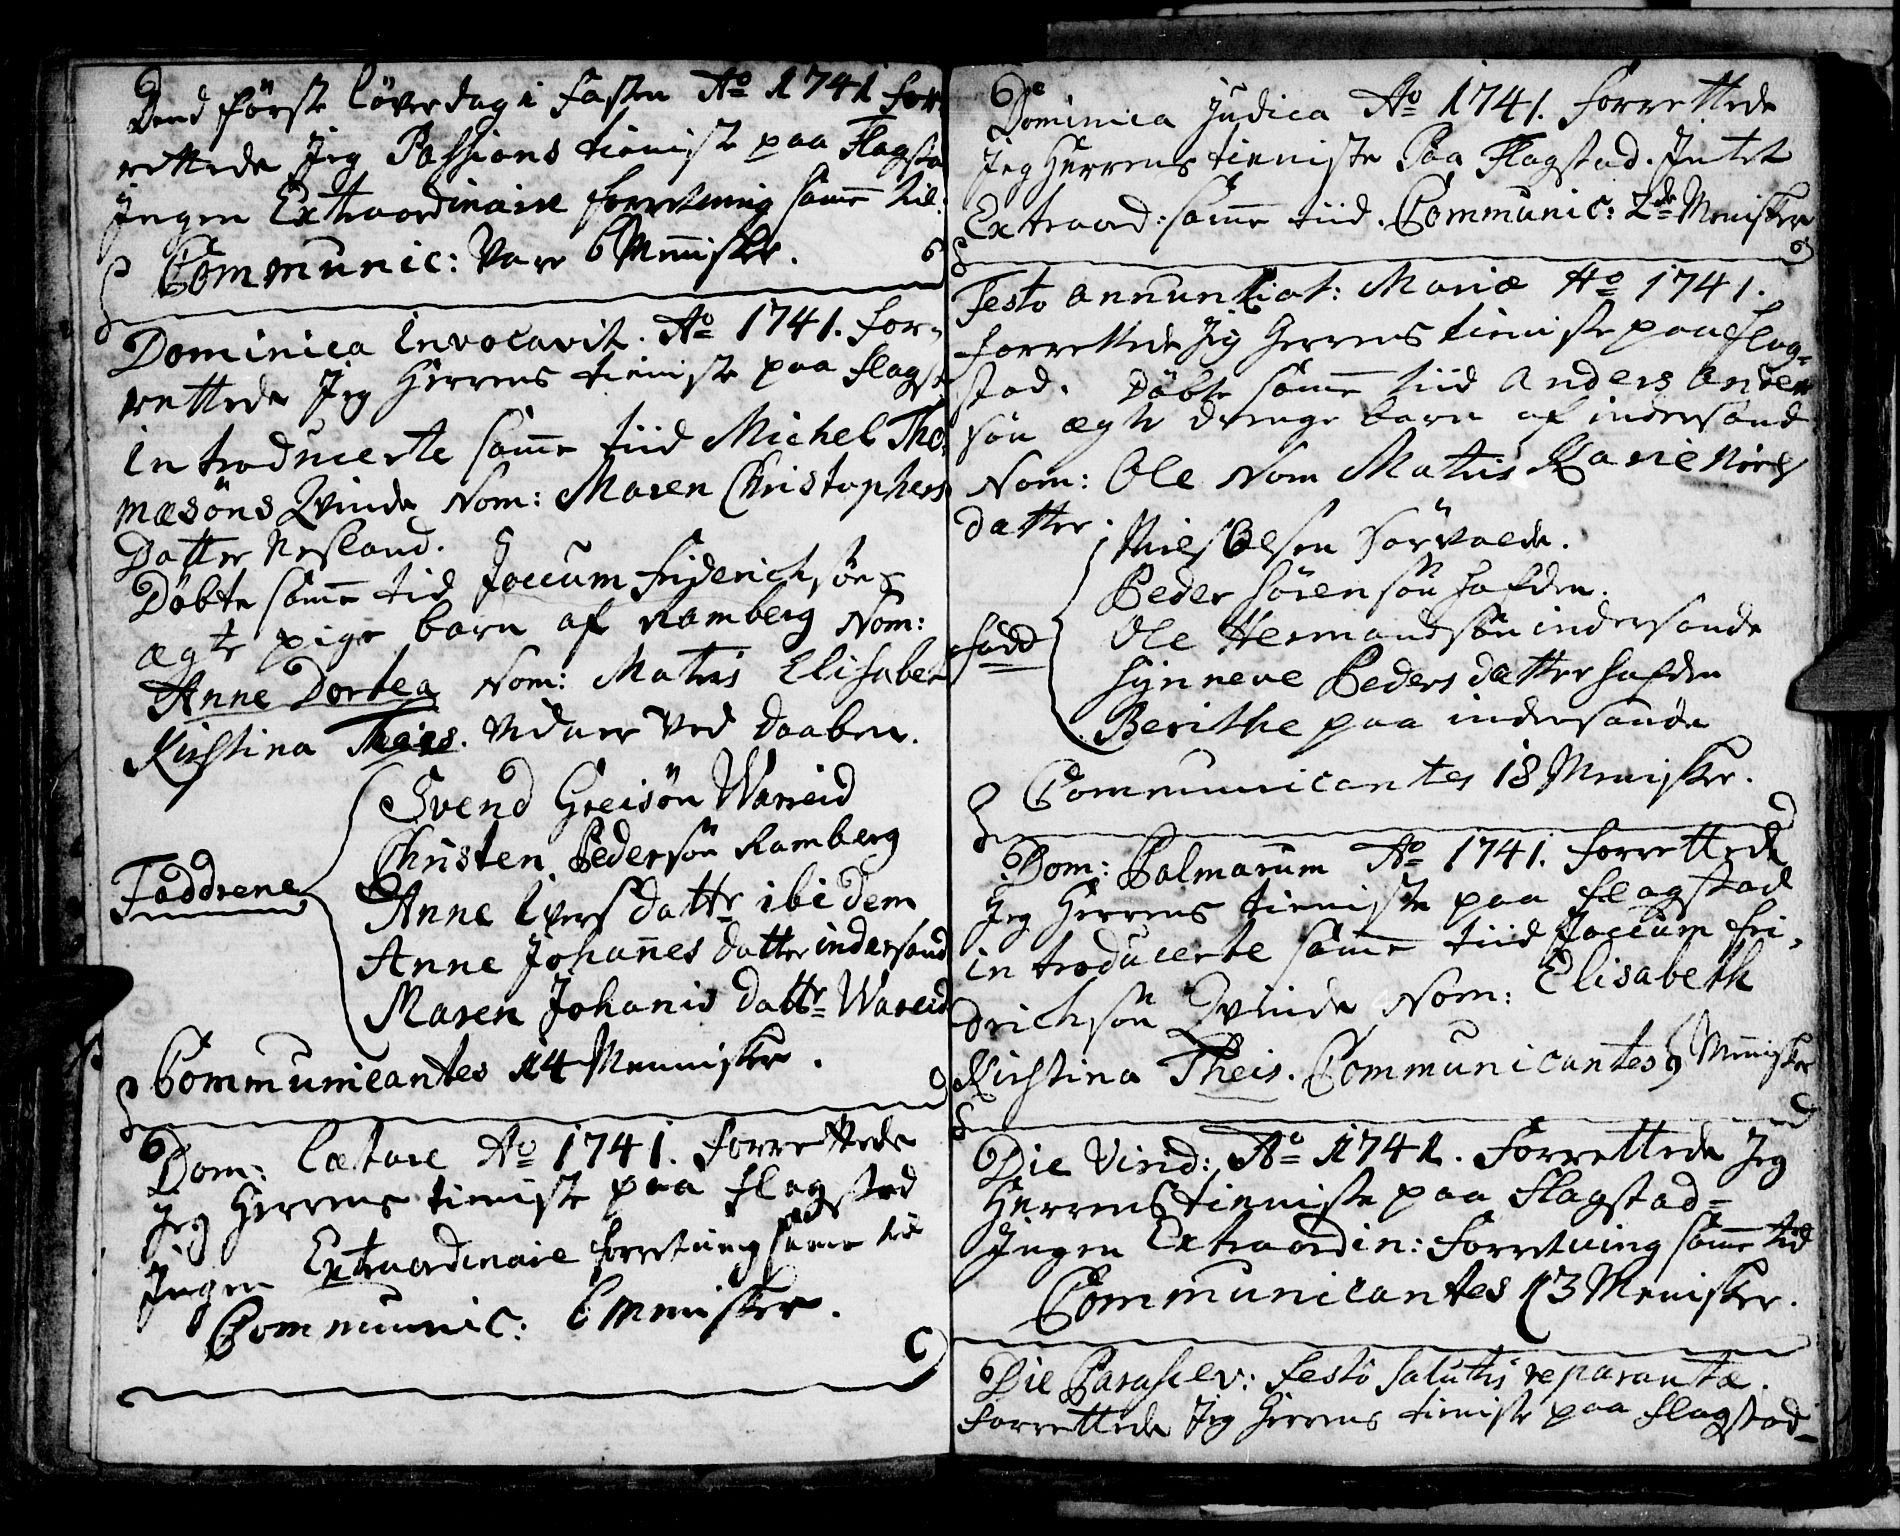 Dend første Løverdag i fasten Ao 1741 for-
rettede Jeg Passions tieniste paa Flagsta
Ingen Extraordinaire forretning same tid.
Communic: Vare 6 Menisker.
Dominica Invocavit. Ao 1741. for-
rettede Jeg Herrens tieniste paa flagst
Introducerte same tiid Michel Tho-
mæsøns Qvinde Nom: Maren Christophers
Datter Nesland.
Døbte same tid Joccum friderichsøns
ægte pige barn af Ramberg Nom:
Anne Dortea Nom: Matris Elisabet
Kirstina Theis. Vidner ved Daaben.
Faddrene
Svend Greisøn Wareid
Christen Pedersøn Ramberg
Anne Ivers dattr ibidem
Anne Johannes datter indersand
Maren Johanis dattr Wareid
Communicantes 14 Mennisker.
Dom: Lætare Ao 1741. forrettede
Jeg Herrens tieniste paa flagstad
Ingen Extraordinaire forretning same tid
Communic: 6 Menisker.
Dominica Judica Ao 1741. forrettede
Jeg Herrens tienniste Paa Flagstad. Intet
Extraord: same tiid. Communic: 2de Menisker
Festo annuntiat: Mariæ Ao 1741.
forrettede Jeg Herrens tieniste paa flag-
stad. Døbte same tiid Anders Ander
søn ægte drenge barn af indersand
Nom: Ole Nom Matris Karie Niels
datter.
fadd
Niels Olsen Sørvaede.
Peder Sørensøn hafden.
Ole Hermandsøn indersande
Synneve Peders datter hafden
Berithe paa indersande
Communicantes 18 Menisker.
Dom: Palmarum Ao 1741. forrettede
Jeg Herrens tieniste paa flagstad
introducerte same tiid Joccum fri-
drichsøn Qvinde Nom: Elisabeth
Kirstina Theis. Communicantes 9 Menisker
Die Virid: Ao 1741. Forrettede Jeg
Herrens tienniste paa flagstad-
Ingen Extraordin: forretning same tid
Communicantes 13 Menisker.
Die Parascev: festo salutis reparantæ.
forrettede Jeg Herrens tieniste paa flagstad